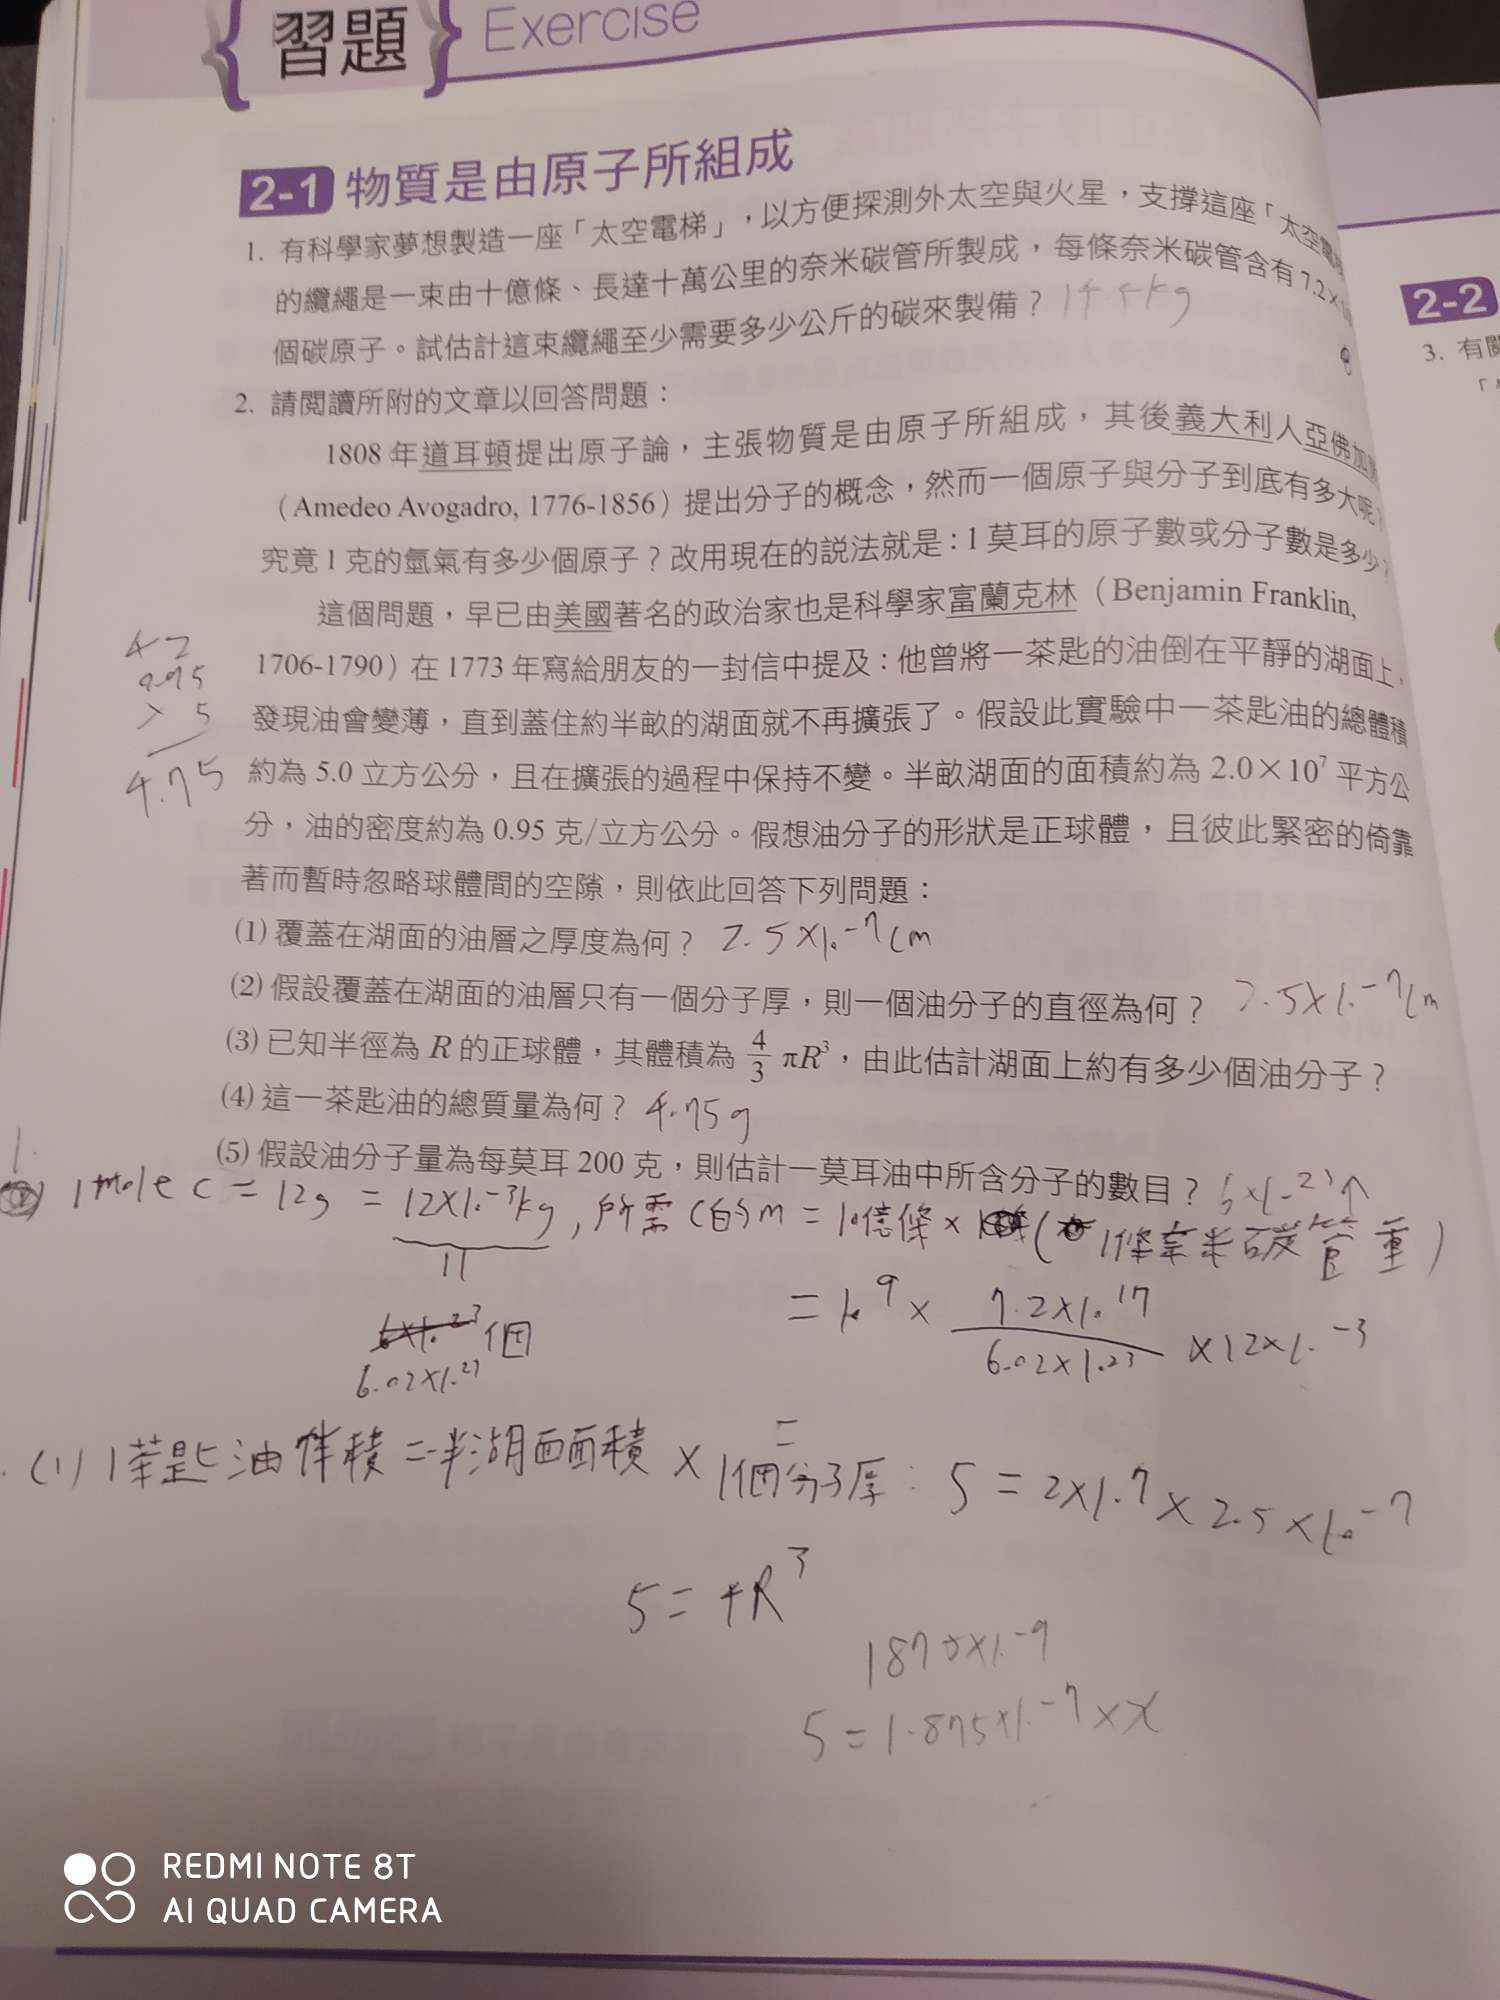 習題 Exercise
2-1 物質是由原子所組成
1. 有科學家夢想製造一座「太空電梯」，以方便探測外太空與火星，支撐這座「太空電梯
的纜繩是一束由十億條、長達十萬公里的奈米碳管所製成，每條奈米碳管含有7.2×
個碳原子。試估計這束纜繩至少需要多少公斤的碳來製備？ 14.4kg
2. 請閱讀所附的文章以回答問題：
1808 年道耳頓提出原子論，主張物質是由原子所組成，其後義大利人亞佛加
（Amedeo Avogadro, 1776-1856）提出分子的概念，然而一個原子與分子到底有多大呢？
究竟 1 克的氫氣有多少個原子？改用現在的說法就是：1 莫耳的原子數或分子數是多少？
這個問題，早已由美國著名的政治家也是科學家富蘭克林（Benjamin Franklin,
1706-1790）在 1773 年寫給朋友的一封信中提及：他曾將一茶匙的油倒在平靜的湖面上，
發現油會變薄，直到蓋住約半畝的湖面就不再擴張了。假設此實驗中一茶匙油的總體積
約為 5.0 立方公分，且在擴張的過程中保持不變。半畝湖面的面積約為 2.0×10⁷ 平方公
分，油的密度約為 0.95 克/立方公分。假想油分子的形狀是正球體，且彼此緊密的倚靠
著而暫時忽略球體間的空隙，則依此回答下列問題：
(1) 覆蓋在湖面的油層之厚度為何？ 2.5×10⁻⁷cm
(2) 假設覆蓋在湖面的油層只有一個分子厚，則一個油分子的直徑為何？ 2.5×10⁻⁷cm
(3) 已知半徑為 R 的正球體，其體積為 4/3 πR³，由此估計湖面上約有多少個油分子？
(4) 這一茶匙油的總質量為何？ 4.75g
(5) 假設油分子量為每莫耳 200 克，則估計一莫耳油中所含分子的數目？ 6×10²³个
0.95
× 5
4.75
1.
1 mole C = 12g = 12×10⁻³kg, 所需C的m = 10億條×(1條奈米碳管重)
6.02×10²³ 個
= 10⁹ × 7.2×10¹⁷/6.02×10²³ ×12×10⁻³
(1) 1茶匙油体積 = 半湖面面積 × 1個分子厚: 5 = 2×10⁷ × 2.5×10⁻⁷
5 = 4R³
1875×10⁻⁹
5 = 1.875×10⁻⁷ × x
2-2
3. 有關
REDMI NOTE 8T
AI QUAD CAMERA